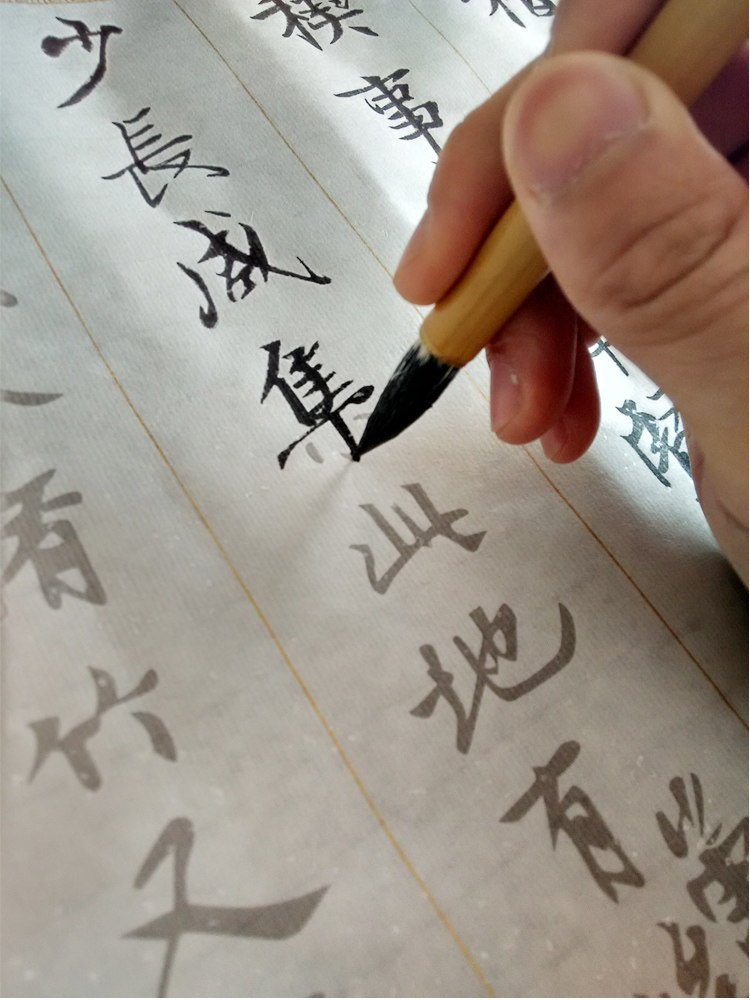 禊事
少長咸集此地有
竹又